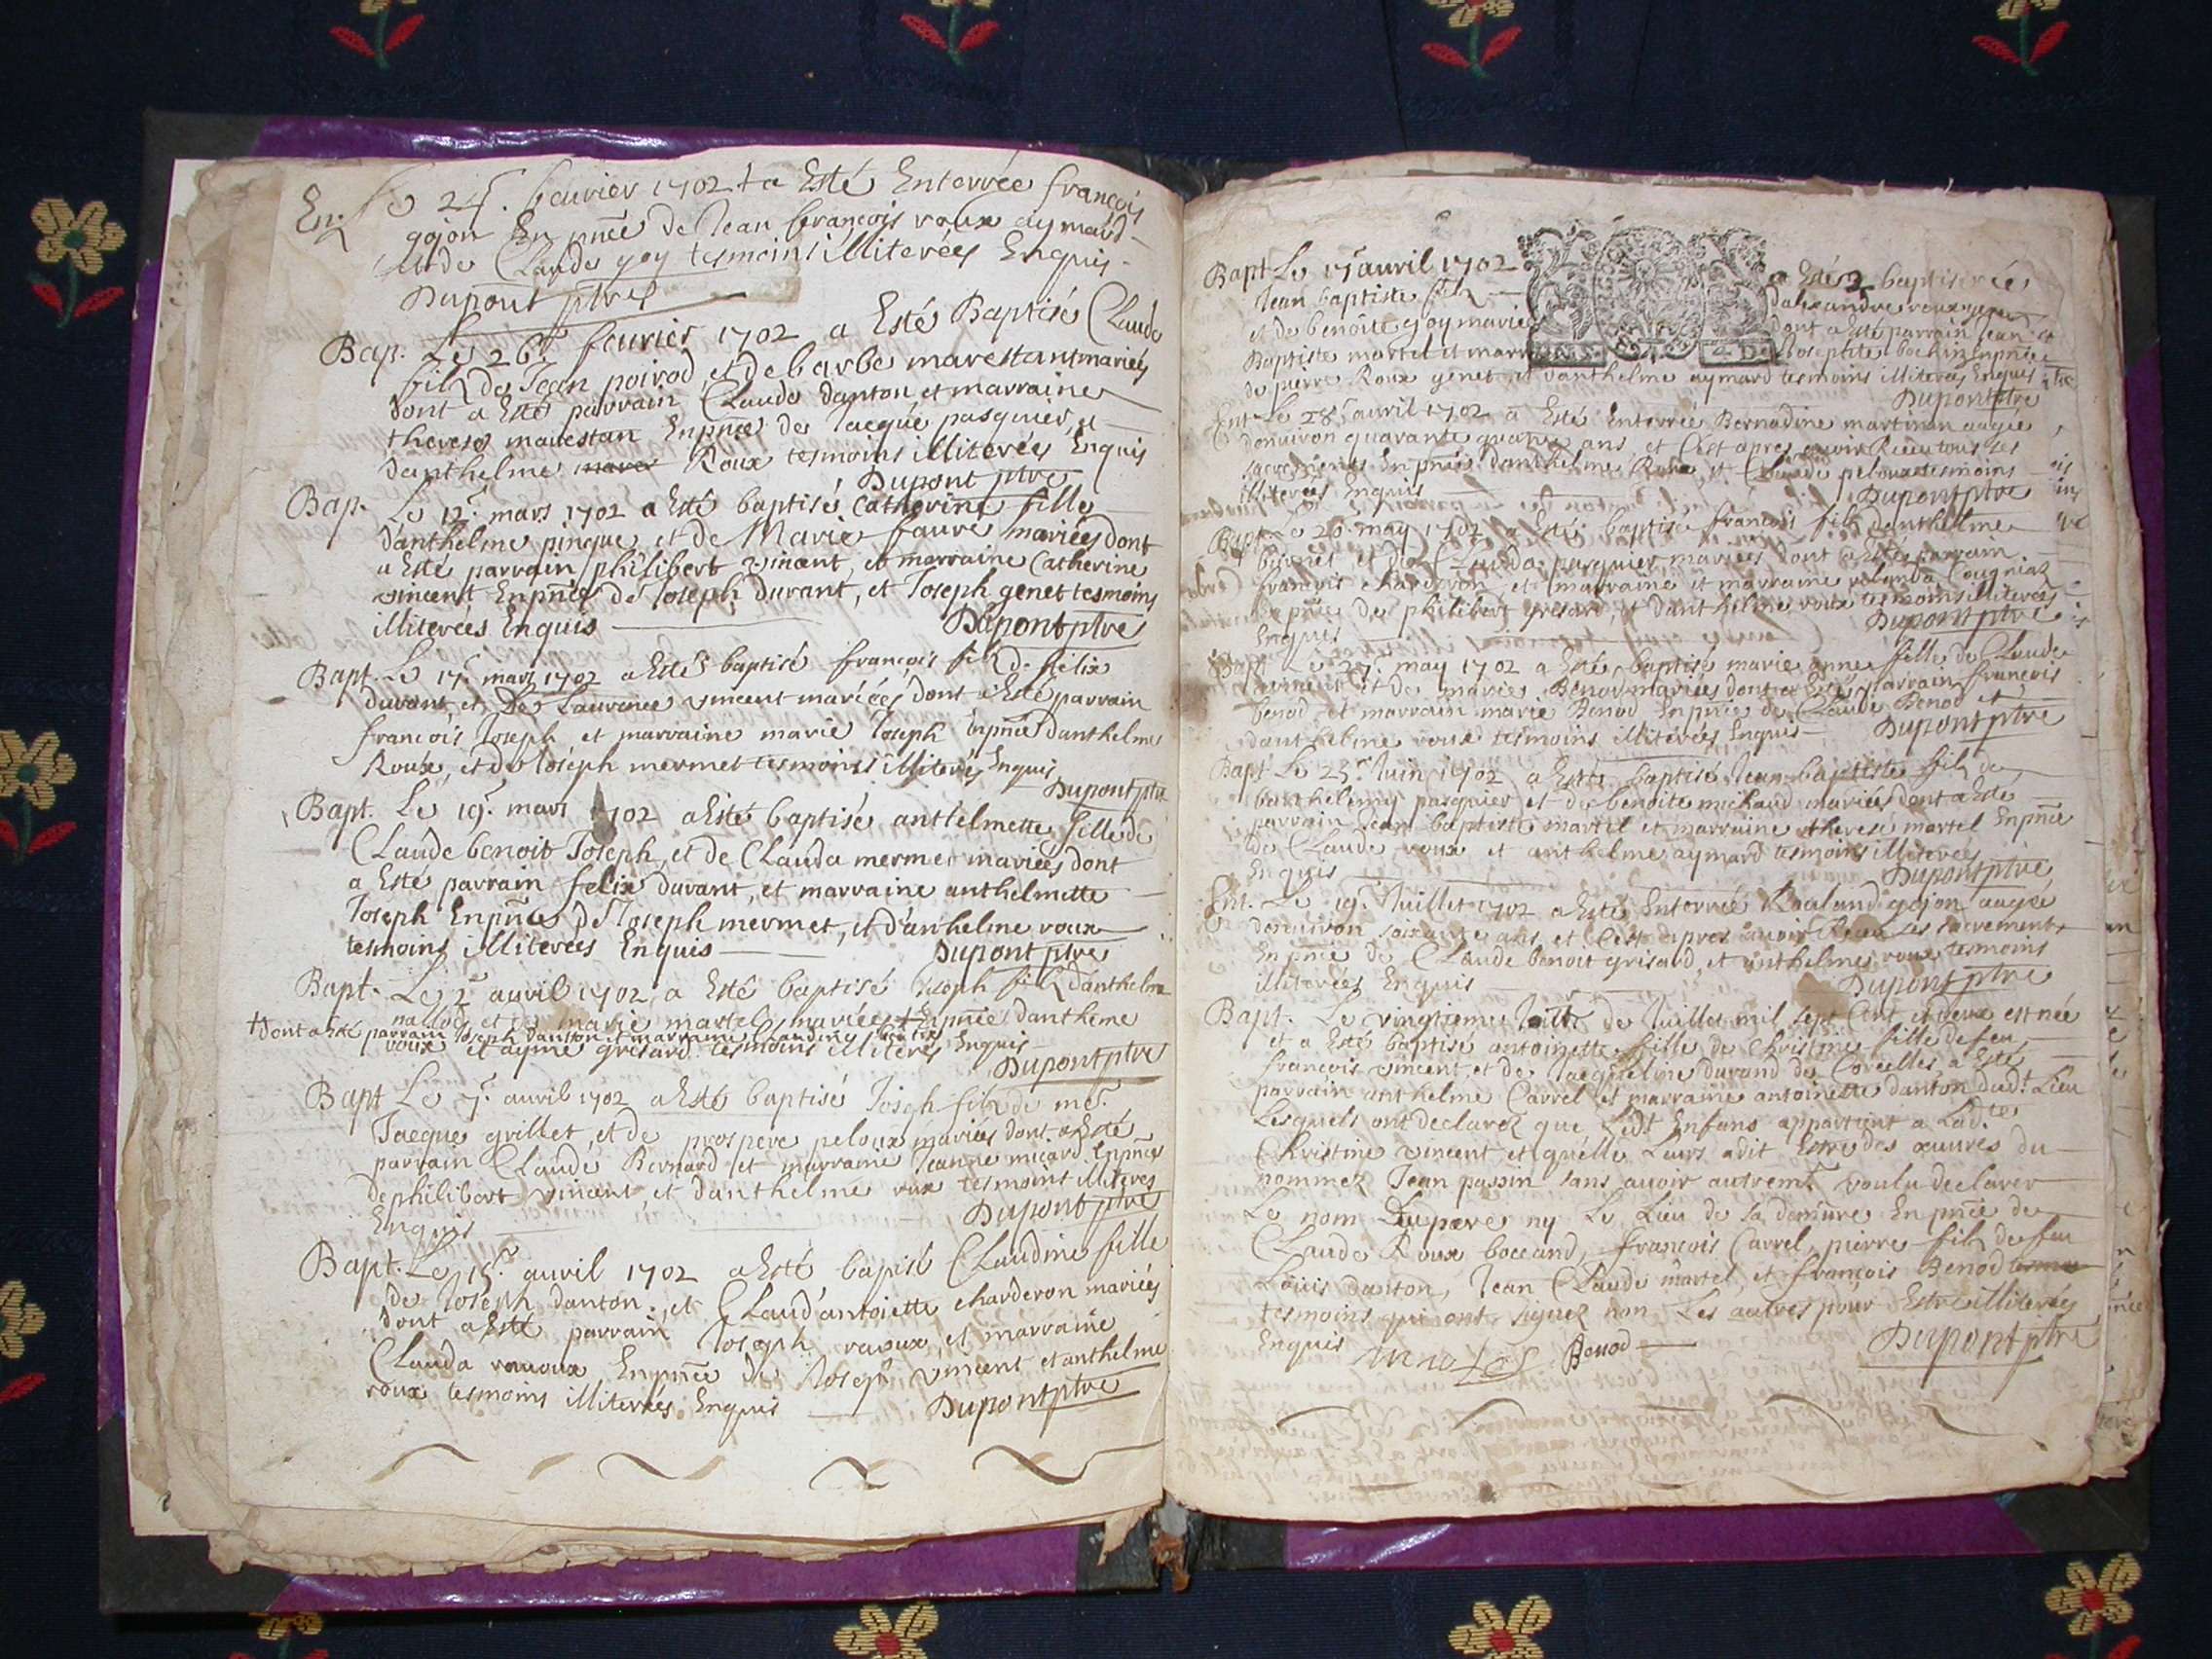 En. Le 24e. feurier 1702 + a Esté Enterrée françois
gojon En pnce de Jean francois roux aymard
et de Claude goy tesmoins illiterées Enquis
Dupont ptre
Bap. Le 26e feurier 1702 a Esté Baptisé Claude
filz de Jean poirod et de barbe marestant mariés
dont a Esté parrain Claude danton et marraine
therese marestan Enpnce de Jacque pasquier, et
danthelme Roux tesmoins illiterées Enquis
Dupont ptre
Bap. Le 12e. mars 1702 a Esté baptisé Catherine fille
danthelme pinque et de Marie faure mariées dont
a Esté parrain philibert vincent, et marraine Catherine
vincent Enpnce de Joseph Durant, et Joseph genet tesmoins
illiterées Enquis Dupont ptre
Bapt. Le 17e. mars 1702 a Esté baptisé françois filz de felix
durant et De Laurence vincent mariées dont a Esté parrain
francois Joseph et marraine marie Joseph Enpnce danthelme
Roux, et de Joseph mermet tesmoins illiterés Enquis
Dupont ptre
Bapt. Le 19e. mars 1702 a Esté baptisé anthelmette fille de
Claude benoit Joseph, et de Clauda mermet mariées dont
a Esté parrain felix durant, et marraine anthelmette
Joseph Enpnce de Joseph mermet, et d'anthelme roux
tesmoins illiterées Enquis Dupont ptre
Bapt. Le 2e auril 1702 a Esté baptisé Joseph filz danthelme
et de marie martel mariées + Enpnce danthelme
+ Dont a Esté parrain Joseph danton et marraine Claudine
roux et aymé grisard tesmoins illiterés Enquis
Dupont ptre
Bapt Le 7e. auril 1702 a Esté baptisé Joseph filz de me.
Jacque grillet, et de prospere peloux mariées dont a Esté
parrain Claude Bernard et marraine Jeanne micard Enpnce
de philibert vincent et danthelme roux tesmoins illiteres
Enquis Dupont ptre
Bapt. Le 15e. auril 1702 a Esté baptisé Claudine fille
de Joseph danton et Claud'antoiette charderon mariés
dont a Esté parrain Joseph rauoux, et marraine
Clauda rauoux Enpnce de Joseph vincent et anthelme
roux tesmoins illiterées Enquis Dupont ptre
Bapt Le 17e auril 1702 a Esté baptisé
Jean baptiste filz dalexandre
et de benoite goy mariés dont a Esté parrain Jean
Baptiste martel et marraine Josephte Enpnce
de pierre Roux genet et danthelme aymard tesmoins illiterées Enquis
Dupont ptre
Ent Le 28e auril 1702 a Esté Enterrée Bernadine martinan augee
denuiron quarante quatre ans, et Cest apres auoir Receu tous Les
sacrements Enpnce danthelme Roux, et Claude peloux tesmoins
illiterées Enquis Dupont ptre
Bapt Le 26. may 1702 a Esté baptisé francois filz danthelme
et de Clauda pasquier mariées dont a Esté parrain
francois charderon et marraine et marraine
Enpnce de philibert grisard, et danthelme roux tesmoins illiterées
Enquis Dupont ptre
Bapt Le 27. may 1702 a Esté baptisé marie anne fille de Claude
vincent et de marie Benod mariées dont a Esté parrain francois
benod et marrain marie Benod Enpnce de Claude Benod et
danthelme roux tesmoins illiterées Enquis Dupont ptre
Bapt Le 25e. Juin 1702 a Esté baptisé Jean baptiste filz de
barthelemy pasquier et de benoite michaud mariées dont a Esté
parrain Jean baptiste martel et marraine therese martel Enpnce
de Claude roux et anthelme aymard tesmoins illiterées
Enquis Dupont ptre
Ent. Le 19e. Juillet 1702 a Esté Enterrée Rouland gojon augée
denuiron soixante ans, et Cest apres auoir Receu Les sacrements
Enpnce de Claude benoit grisard, et anthelme roux tesmoins
illiterées Enquis Dupont ptre
Bapt. Le vingtieme de Juillet mil sept Cent et deux est née
et a Esté baptisé antoinette fille de Christine fille de feu
françois vincent, et de Jacqueline durand de Corcelles, a Esté
parrain anthelme Carrel et marraine antoinette danton dudt. Lieu
Lesquels ont declarez que Ledt. Enfans appartient a Ladte
Christine vincent, et quélle Leurs adit Estre des œuures du
nommez Jean passin sans auoir autremt. voulu declarer
Le nom Du pere ny Le Lieu de sa demure Enpnce de
Claude Roux boccand, françois Carrel, pierre filz de feu
Louis danton, Jean Claude martel, et françois Benod
tesmoins qui ont signez non Les autres pour Estre illiterées
Enquis Benod Dupont ptre